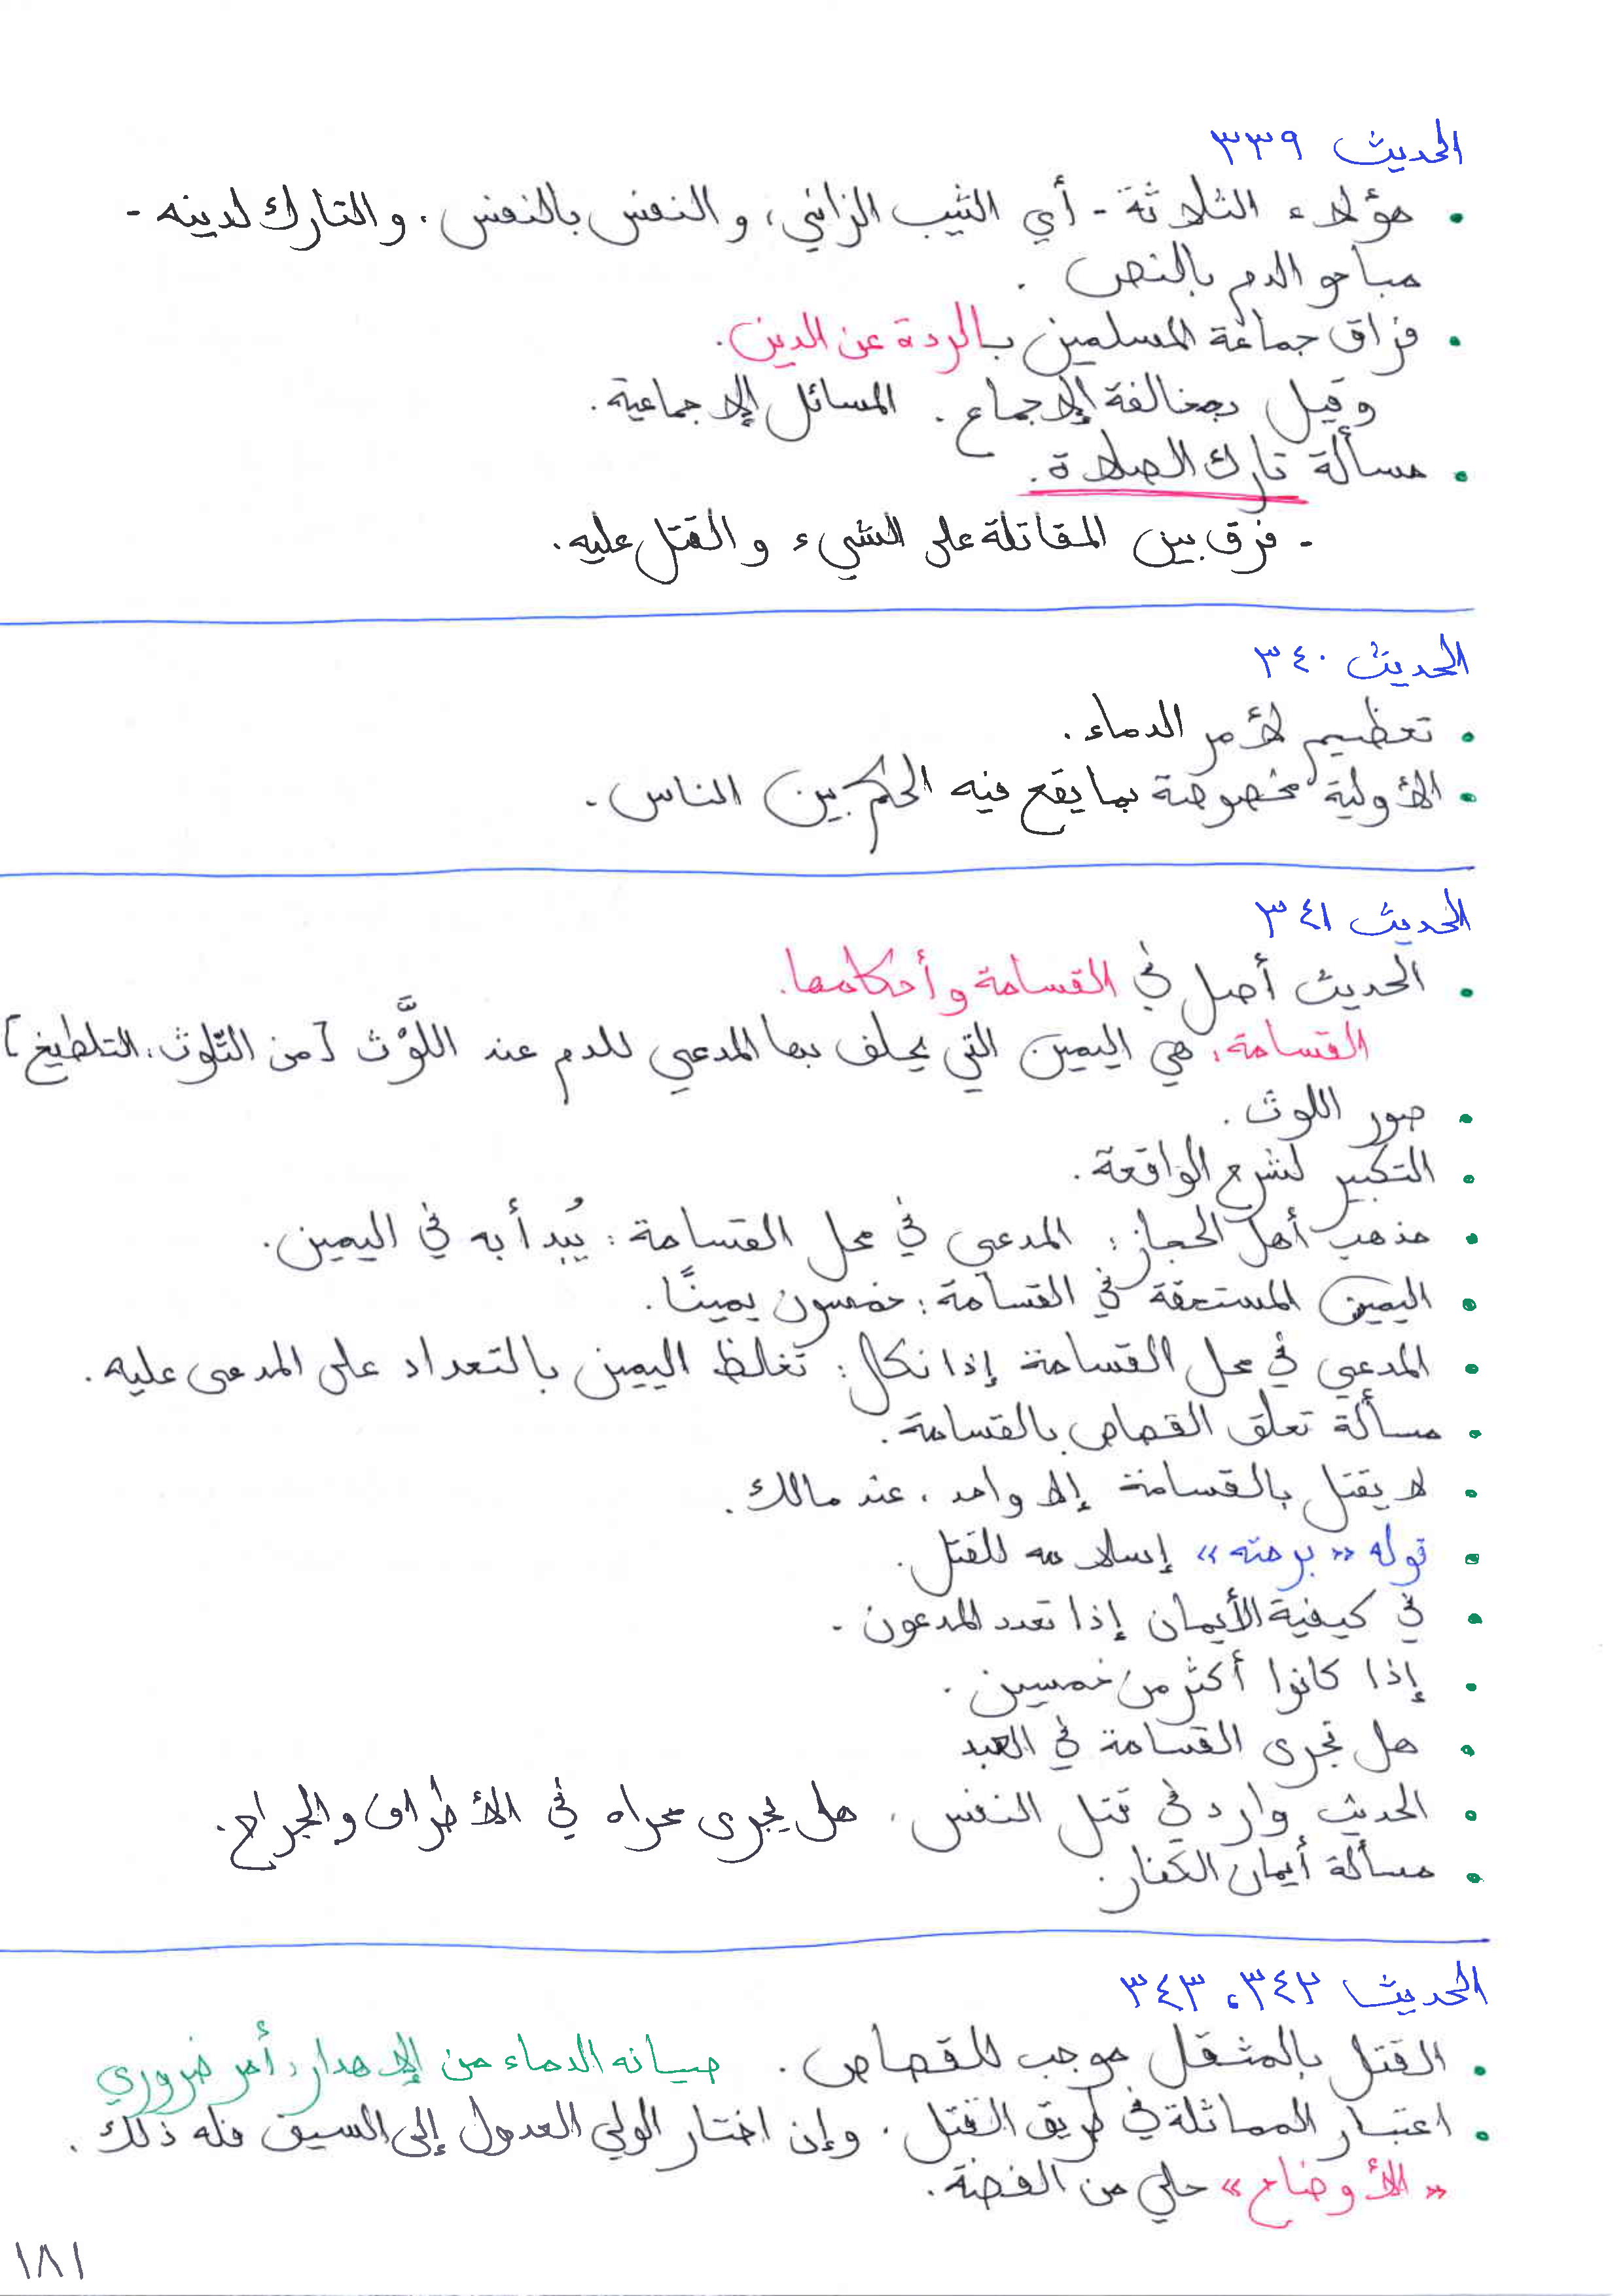 الحديث ٣٣٩
• هؤلاء الثلاثة - أي الثيب الزاني، والنفس بالنفس، والتارك لدينه -
مباحو الدم بالنص .
• فراق جماعة المسلمين بالردة عن الدين.
وقيل بمخالفة الإجماع. المسائل الإجماعية.
• مسألة تارك الصلاة.
- فرق بين المقاتلة على الشيء والقتل عليه.
الحديث ٣٤٠
• تعظيم لأمر الدماء.
• الأولية مخصوصة بما يقع فيه الحكم بين الناس.
الحديث ٣٤١
• الحديث أصل في القسامة وأحكامها.
القسامة: هي اليمين التي يحلف بها المدعي للدم عند اللَّوْث [من التلوث: التلطيخ]
• صور اللوث.
• التكبير لشرع الواقعة.
• مذهب أهل الحجاز: المدعي في محل القسامة: يُبدأ به في اليمين.
• اليمين المستحقة في القسامة: خمسون يمينًا.
• المدعي في محل القسامة إذا نكل: تغلظ اليمين بالتعداد على المدعى عليه.
• مسألة تعلق القصاص بالقسامة.
• لا يقتل بالقسامة إلا واحد، عند مالك.
• قوله «برمته» إسلامه للقتل.
• في كيفية الأيمان إذا تعدد المدعون.
• إذا كانوا أكثر من خمسين.
• هل تجرى القسامة في العبد
• الحديث وارد في قتل النفس، هل يجرى مجراه في الأطراف والجراح.
• مسألة أيمان الكفار.
الحديثا ٣٤٢، ٣٤٣
• القتل بالمثقل موجب للقصاص. صيانه الدماء من الإهدار: أمر ضروري
• اعتبار المماثلة في طريق القتل. وإن اختار الولي العدول إلى السيف فله ذلك.
«الأوضاح» حلي من الفضة.
١٨١